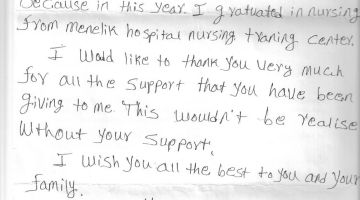 because in this year. I gratuated in nursing
from menelik hospital nursing traning center.
I Wold like to thank you very much
for all the support that you have been
giving to me. This wouldn't be realise
Without your support.
I Wish you all the best to you and your
family.